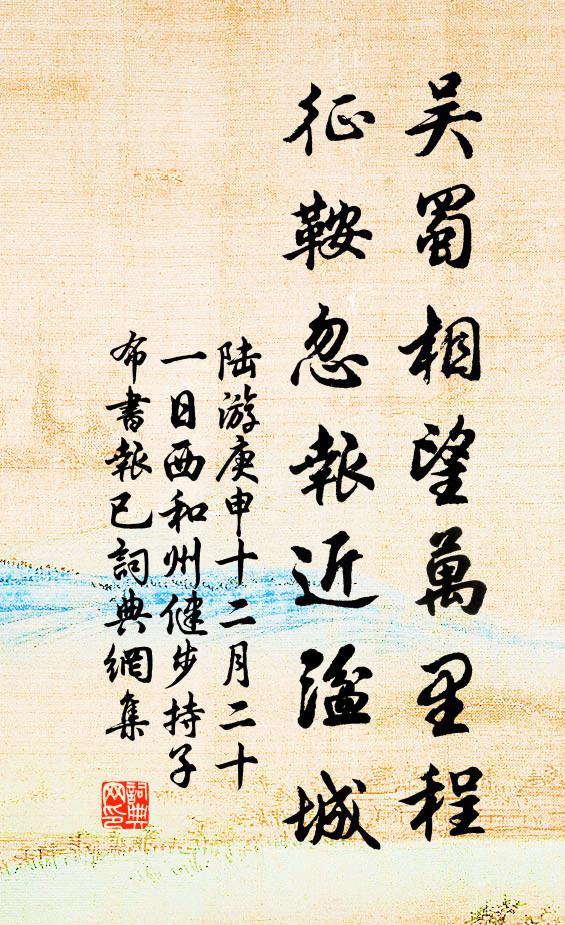 吴蜀相望萬里程
征鞍忽報近湓城
陆游庚申十二月二十
一日西和州健步持子
布書報已詞典網集
詞典
网印